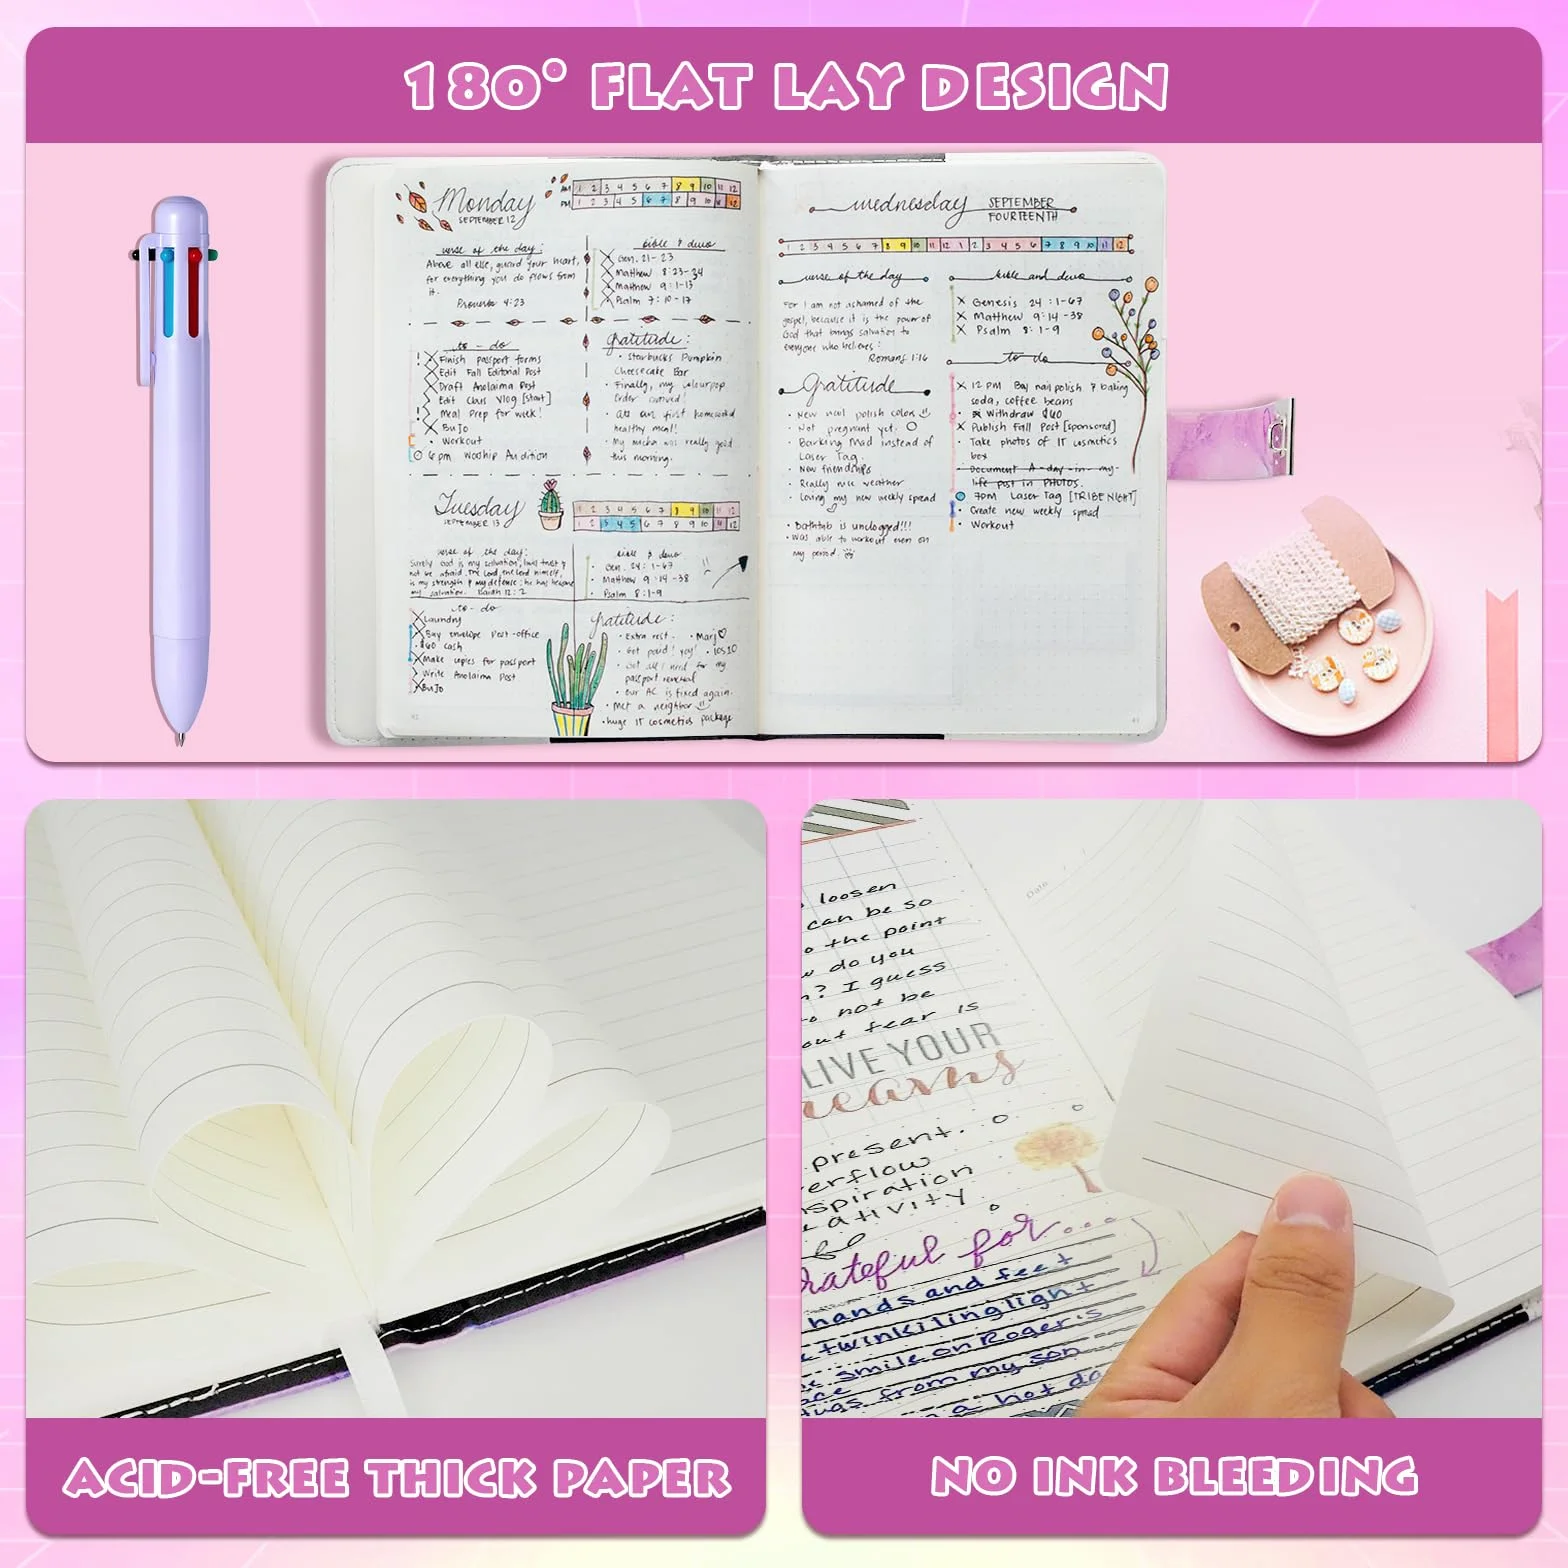 180° FLAT LAY DESIGN
Monday
SEPTEMBER 12
AM 1 2 3 4 5 6 7 8 9 10 11 12
PM 1 2 3 4 5 6 7 8 9 10 11 12
verse of the day:
Above all else, guard your heart,
for everything you do flows from
it.
Proverbs 4:23
bible & devo
Gen. 21-23
Matthew 8:23-34
Matthew 9:1-13
Psalm 7:10-17
to-do
! Finish passport forms
Edit Fall Editorial Post
Draft Anolaima Post
Edit Claus Vlog [start]
! Meal Prep for week!
BuJo
Workout
6pm Worship Audition
gratitude:
• Starbucks Pumpkin
Cheesecake Bar
• Finally, my colourpop
order arrived!
• our first homecooked
healthy meal!
• My mocha was really good
this morning.
Tuesday
SEPTEMBER 13
1 2 3 4 5 6 7 8 9 10 11 12
1 2 3 4 5 6 7 8 9 10 11 12
verse of the day:
Surely God is my salvation, I will trust &
not be afraid. The Lord, the Lord himself,
is my strength & my defense; he has become
my salvation. Isaiah 12:2
bible & devo
• Gen. 24:1-67
• Matthew 9:14-38
• Psalm 8:1-9
to-do
Laundry
Buy envelope Post-office
• $60 cash
Make copies for passport
Write Anolaima Post
BuJo
gratitude:
• Extra rest. • Marj♡
• Got paid! yay! • ios10
• Got all I need for my
passport renewal
• our AC is fixed again.
• Met a neighbor
• huge IT cosmetics package
wednesday SEPTEMBER
FOURTEENTH
1 2 3 4 5 6 7 8 9 10 11 12 1 2 3 4 5 6 7 8 9 10 11 12
verse of the day
For I am not ashamed of the
gospel, because it is the power of
God that brings salvation to
everyone who believes:
Romans 1:16
bible and devo
X Genesis 24:1-67
X Matthew 9:14-38
X Psalm 8:1-9
Gratitude
• New nail polish colors
• Not pregnant yet.
• Barking Mad instead of
Laser Tag.
• New friendships
• Really nice weather
• Loving my new weekly spread
• Bathtub is unclogged!!!
• Was able to workout even on
my period.
to do
X 12 PM Buy nail polish & baking
soda, coffee beans
• Withdraw $60
X Publish Fall Post [sponsored]
• Take photos of IT cosmetics
box
Document A-day-in-my-
life post in PHOTOS.
7pm Laser Tag [TRIBE NIGHT]
• Create new weekly spread
• Workout
loosen
can be so
the point
do you
? I guess
not be
out fear is
LIVE YOUR
present.
Date
grateful for...
hands and feet
twinkilinglight
smile on Roger's
from my son
a hot
ACID-FREE THICK PAPER
NO INK BLEEDING